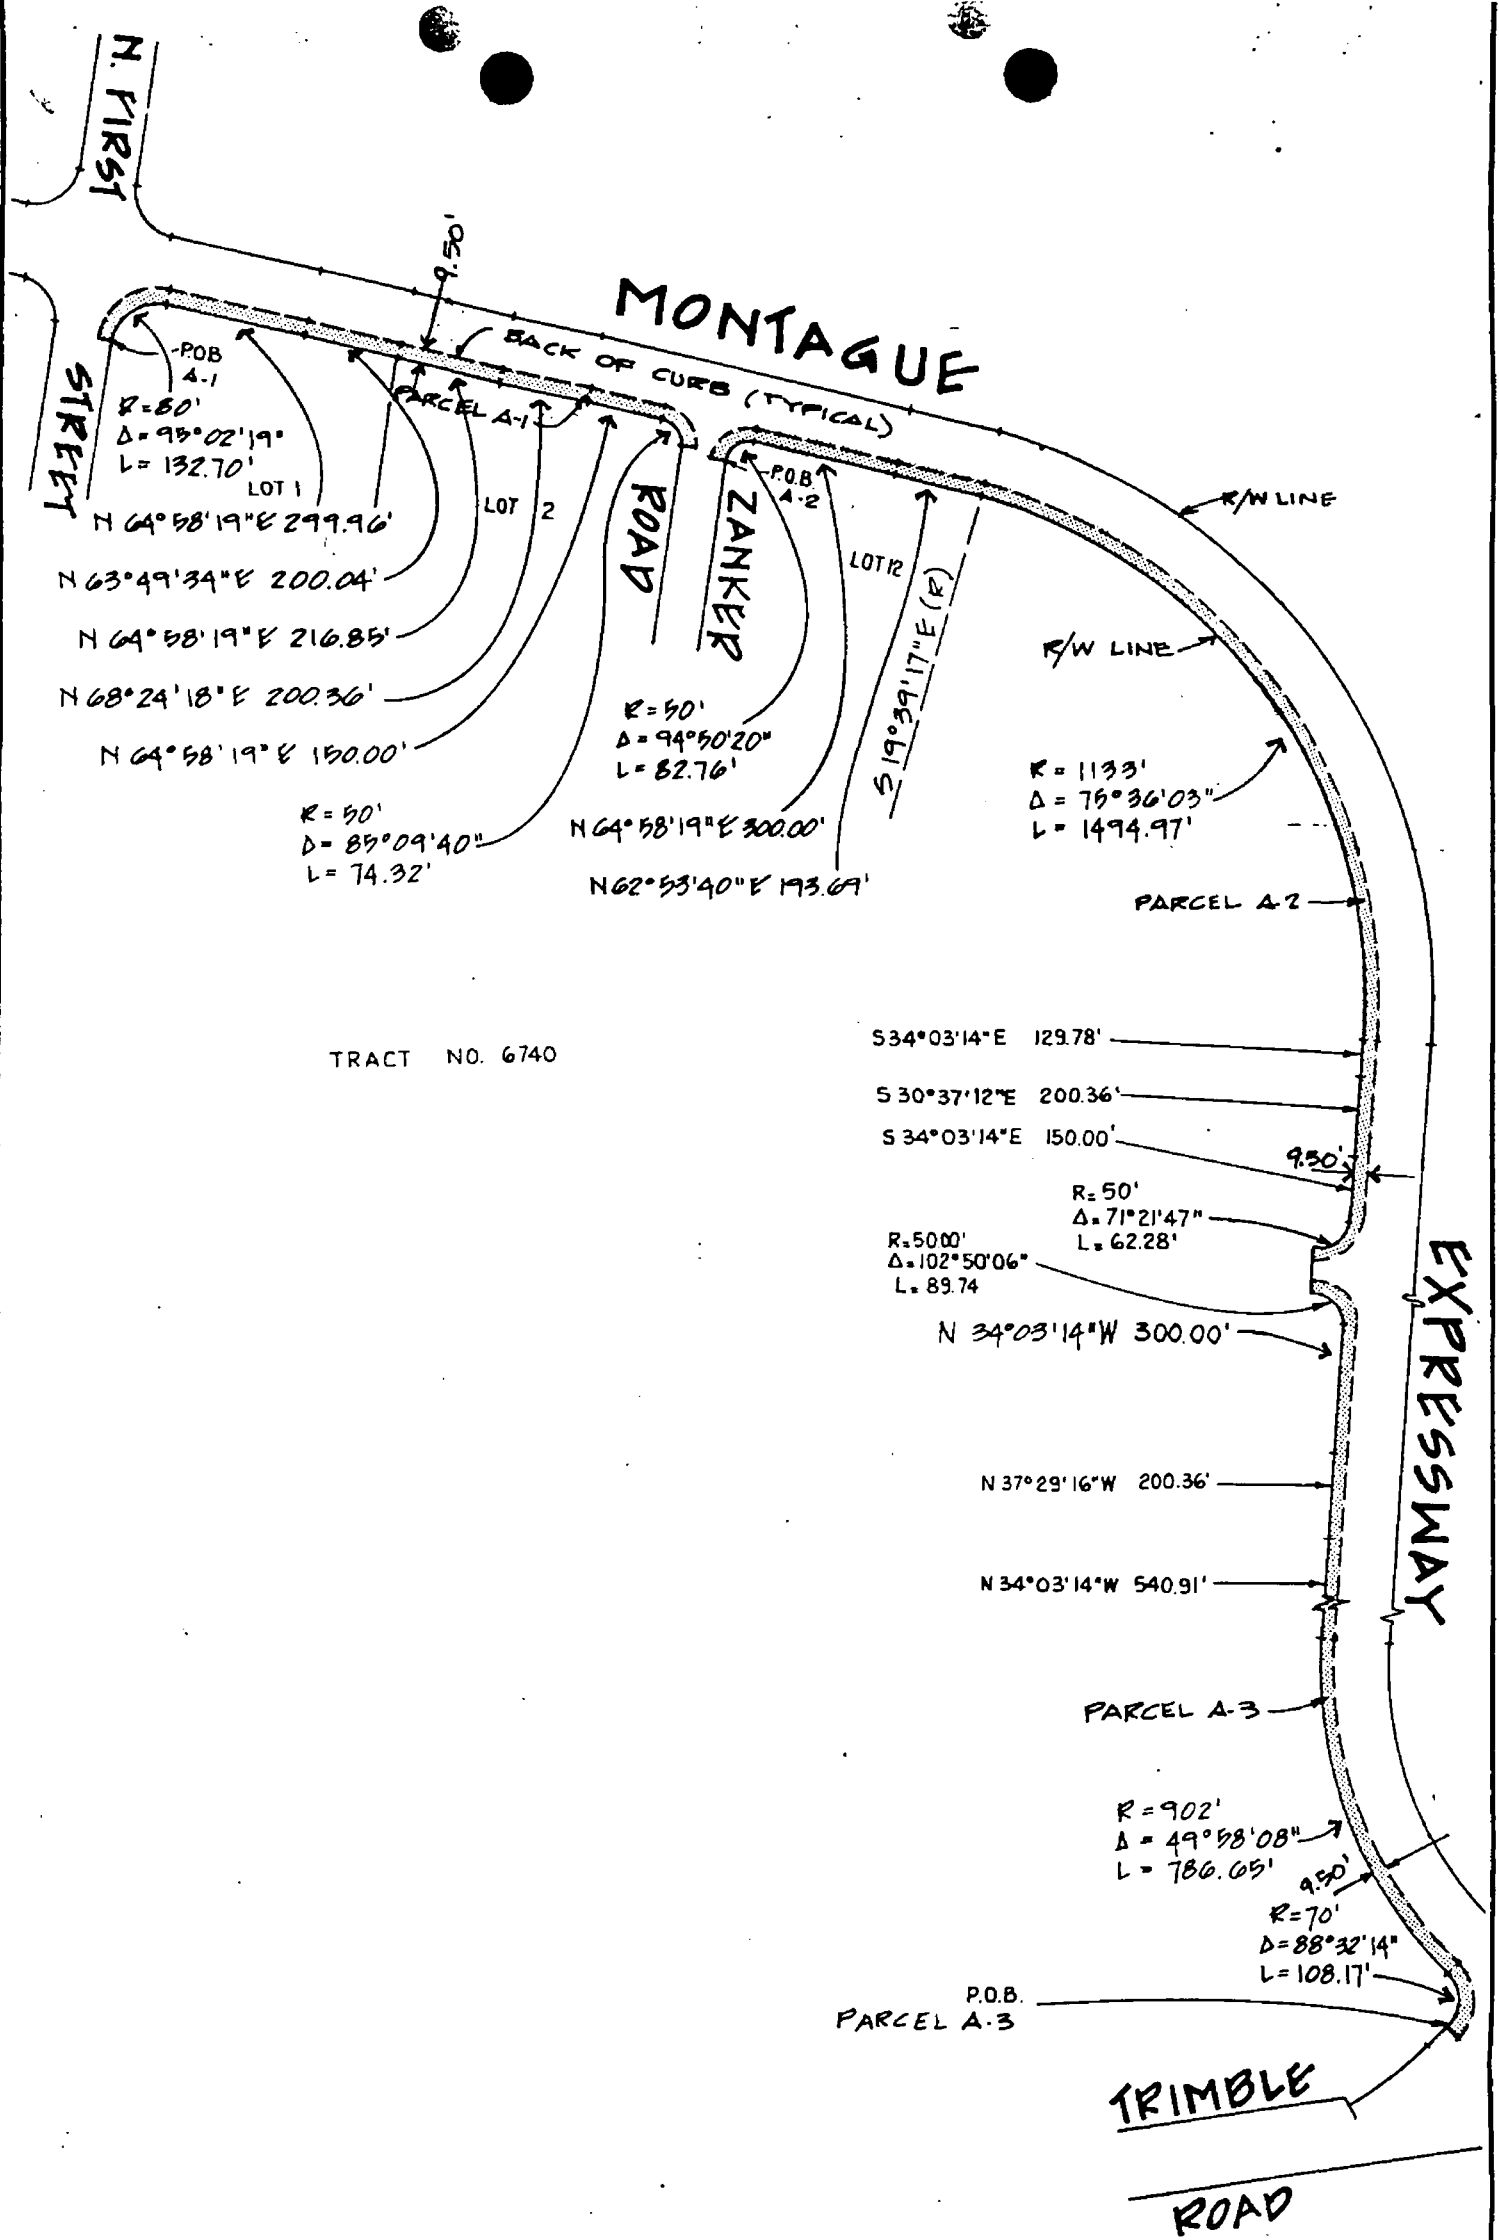 N. FIRST
STREET
9.50'
MONTAGUE
BACK OF CURB (TYPICAL)
P.O.B
A-1
R=80'
Δ=95°02'19"
L= 132.70'
LOT 1
PARCEL A-1
N 64°58'19"E 299.96'
LOT 2
N 63°49'34"E 200.04'
N 64°58'19"E 216.85'
N 68°24'18"E 200.36'
N 64°58'19"E 150.00'
R= 50'
Δ= 85°09'40"
L= 74.32'
ROAD
ZANKER
P.O.B.
A-2
LOT 12
R=50'
Δ= 94°50'20"
L= 82.76'
N 64°58'19"E 300.00'
N 62°53'40"E 193.69'
S 19°39'17"E (R)
R/W LINE
R/W LINE
R= 1133'
Δ= 75°36'03"
L= 1494.97'
PARCEL A-2
TRACT NO. 6740
S 34°03'14"E 129.78'
S 30°37'12"E 200.36'
S 34°03'14"E 150.00'
9.50'
R= 50'
Δ= 71°21'47"
L= 62.28'
R=50.00'
Δ=102°50'06"
L= 89.74
N 34°03'14"W 300.00'
EXPRESSWAY
N 37°29'16"W 200.36'
N 34°03'14"W 540.91'
PARCEL A-3
R=902'
Δ= 49°58'08"
L= 786.65'
9.50'
R=70'
Δ=88°32'14"
L=108.17'
P.O.B.
PARCEL A-3
TRIMBLE
ROAD